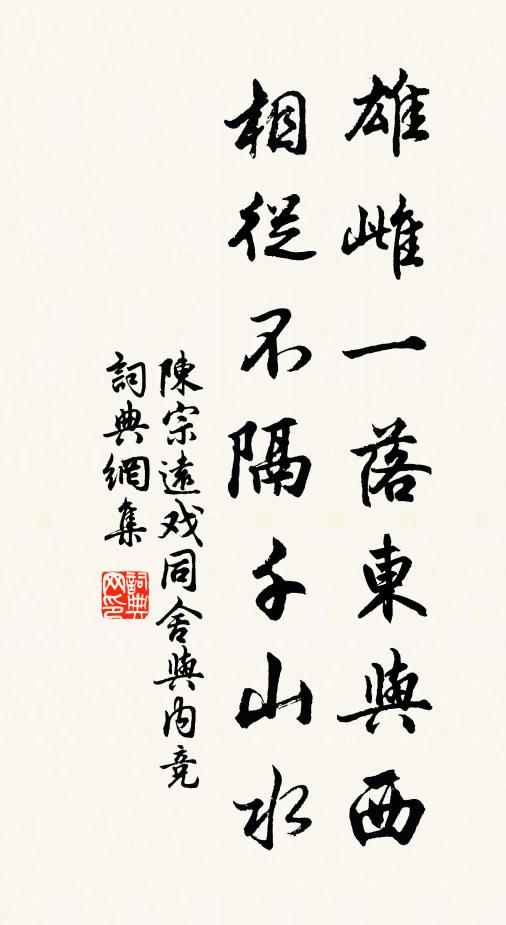 雄雌一落東與西
相從不隔千山水
陳宗遠戏同舍與内竞
詞典網集
詞典网印